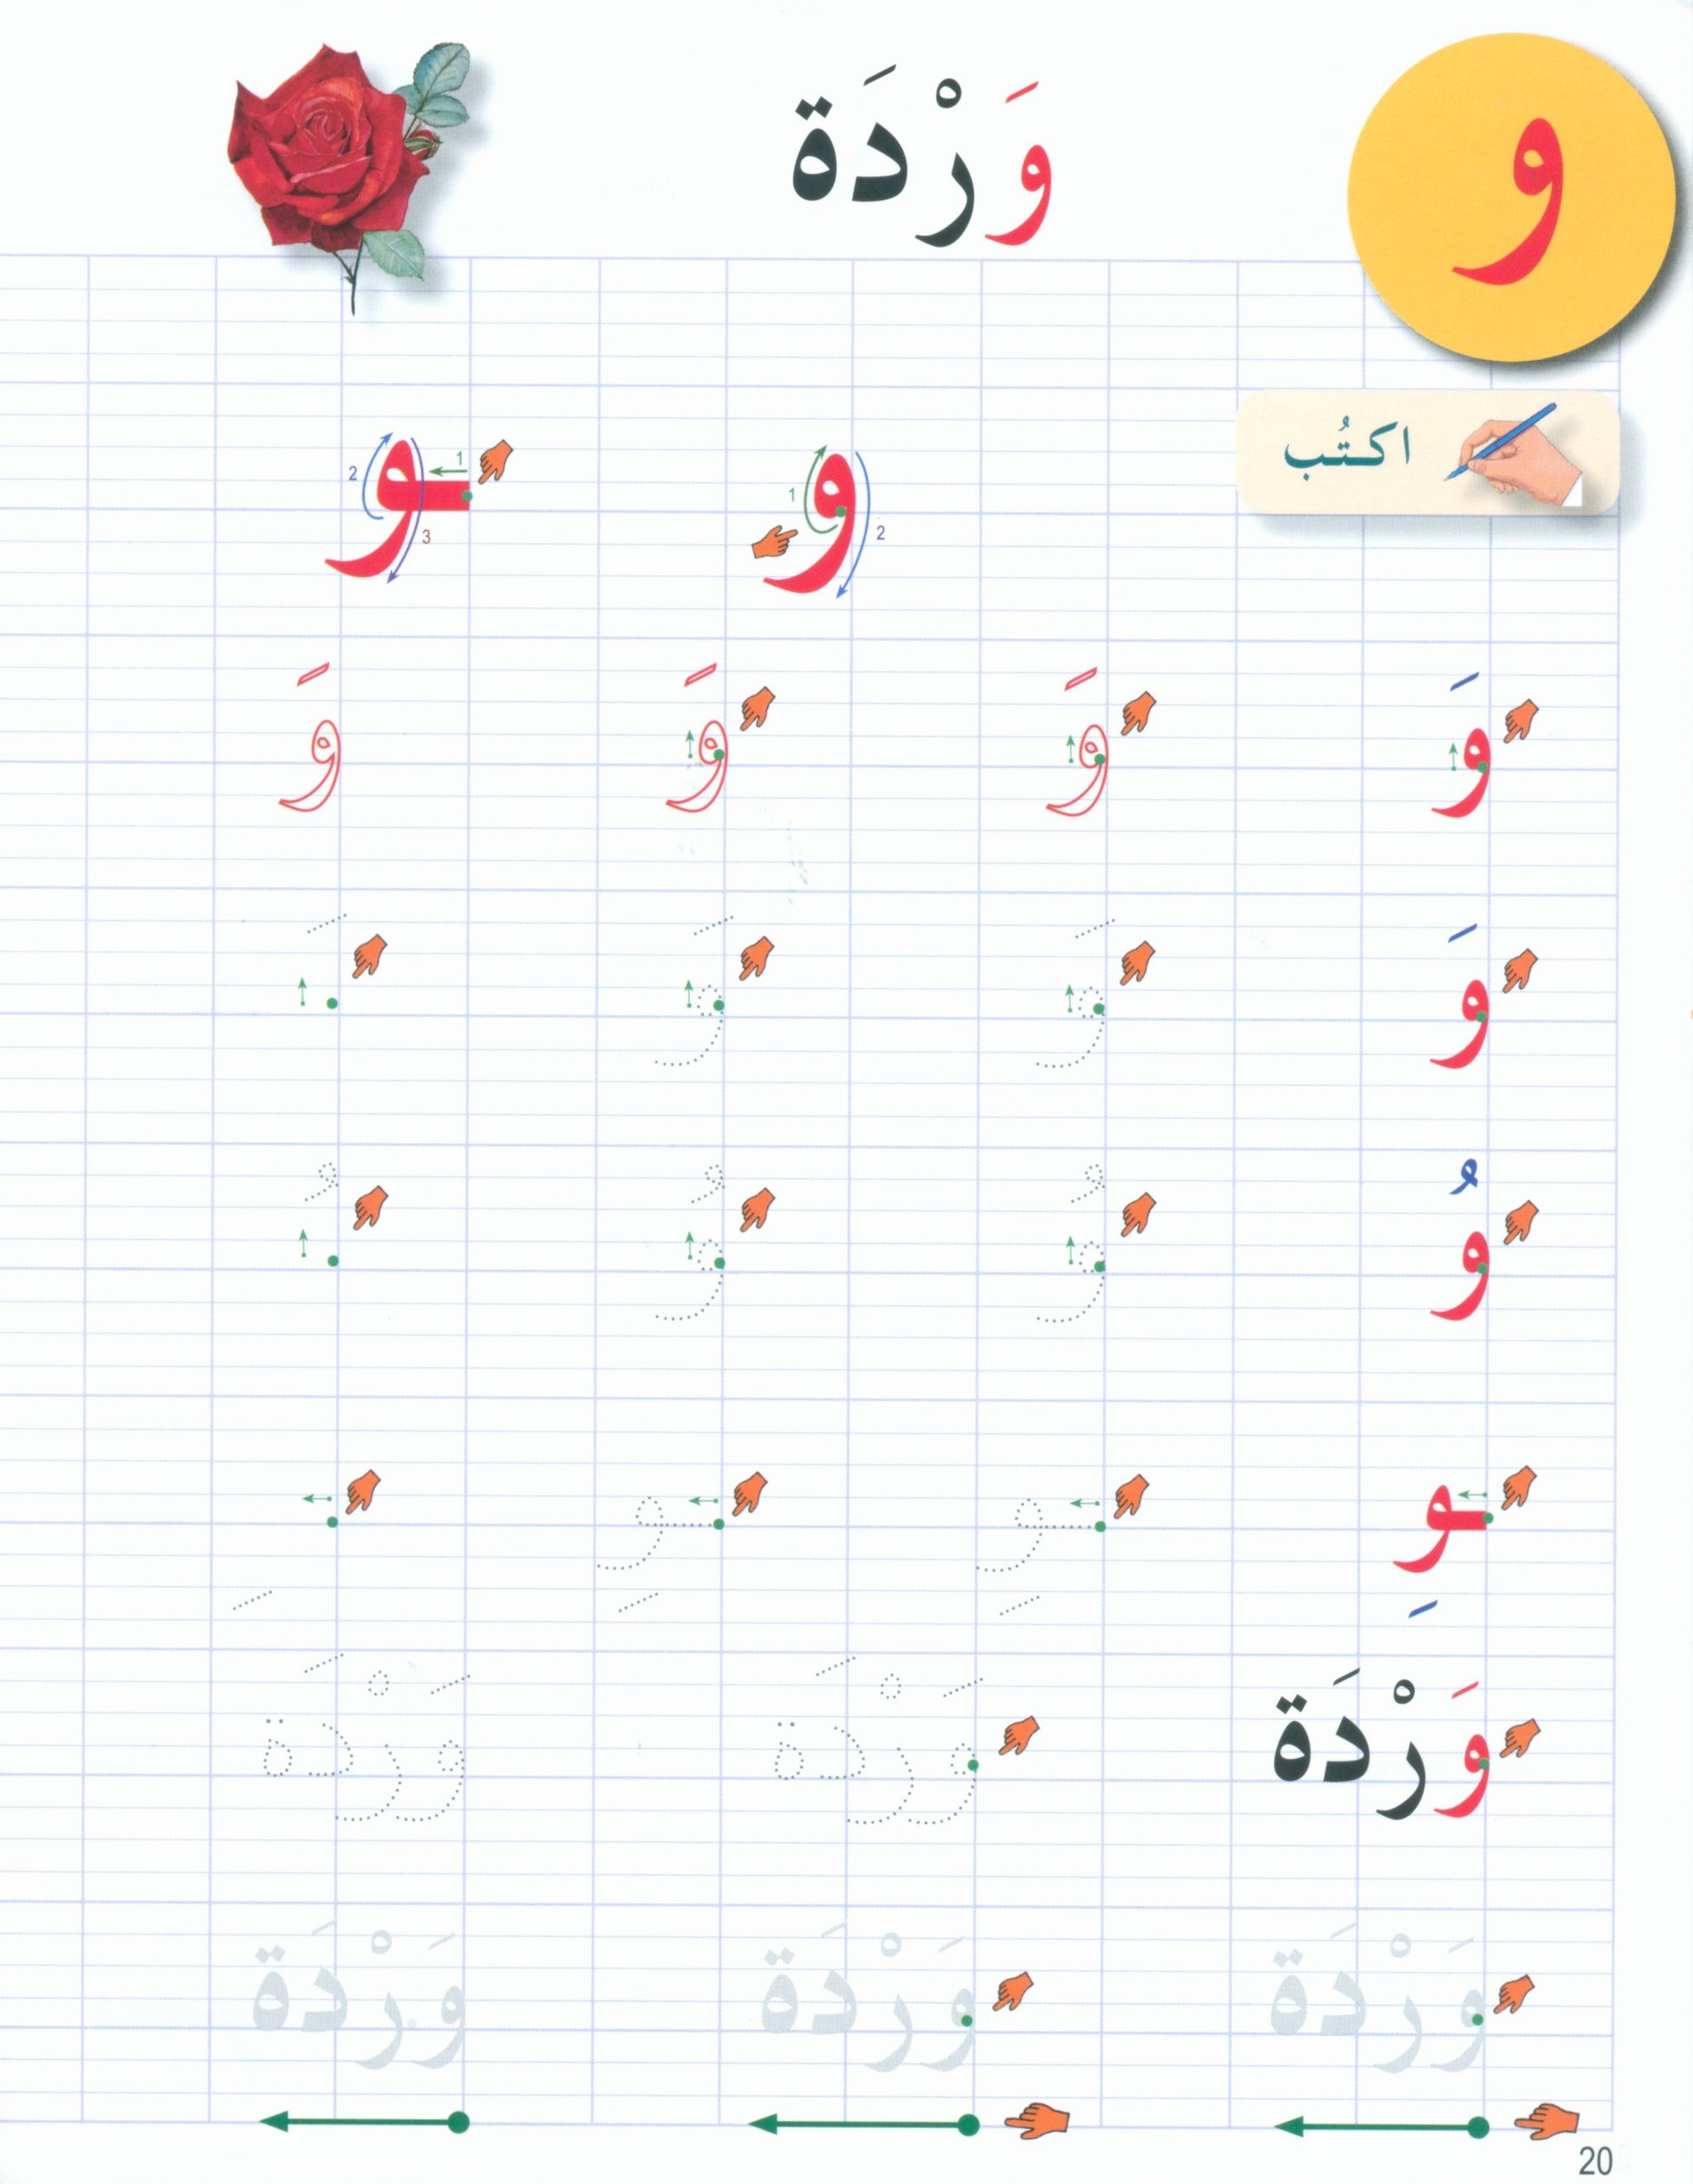 و وَرْدَة
اكتُب
و ـو
1 2 1 2 3
وَ وَ وَ وَ
وَ وَ وَ
وُ وُ وُ
ـوِ ـوِ ـوِ
وَرْدَة وَرْدَة وَرْدَة
وَرْدَة وَرْدَة وَرْدَة
20